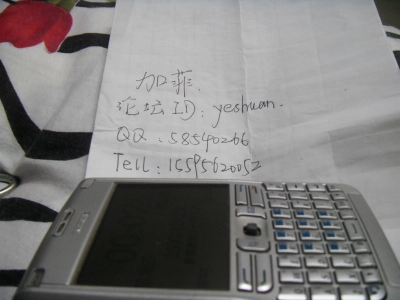 加菲.
论坛ID: yeshuan.
QQ: 58540266
Tell: 15595620052